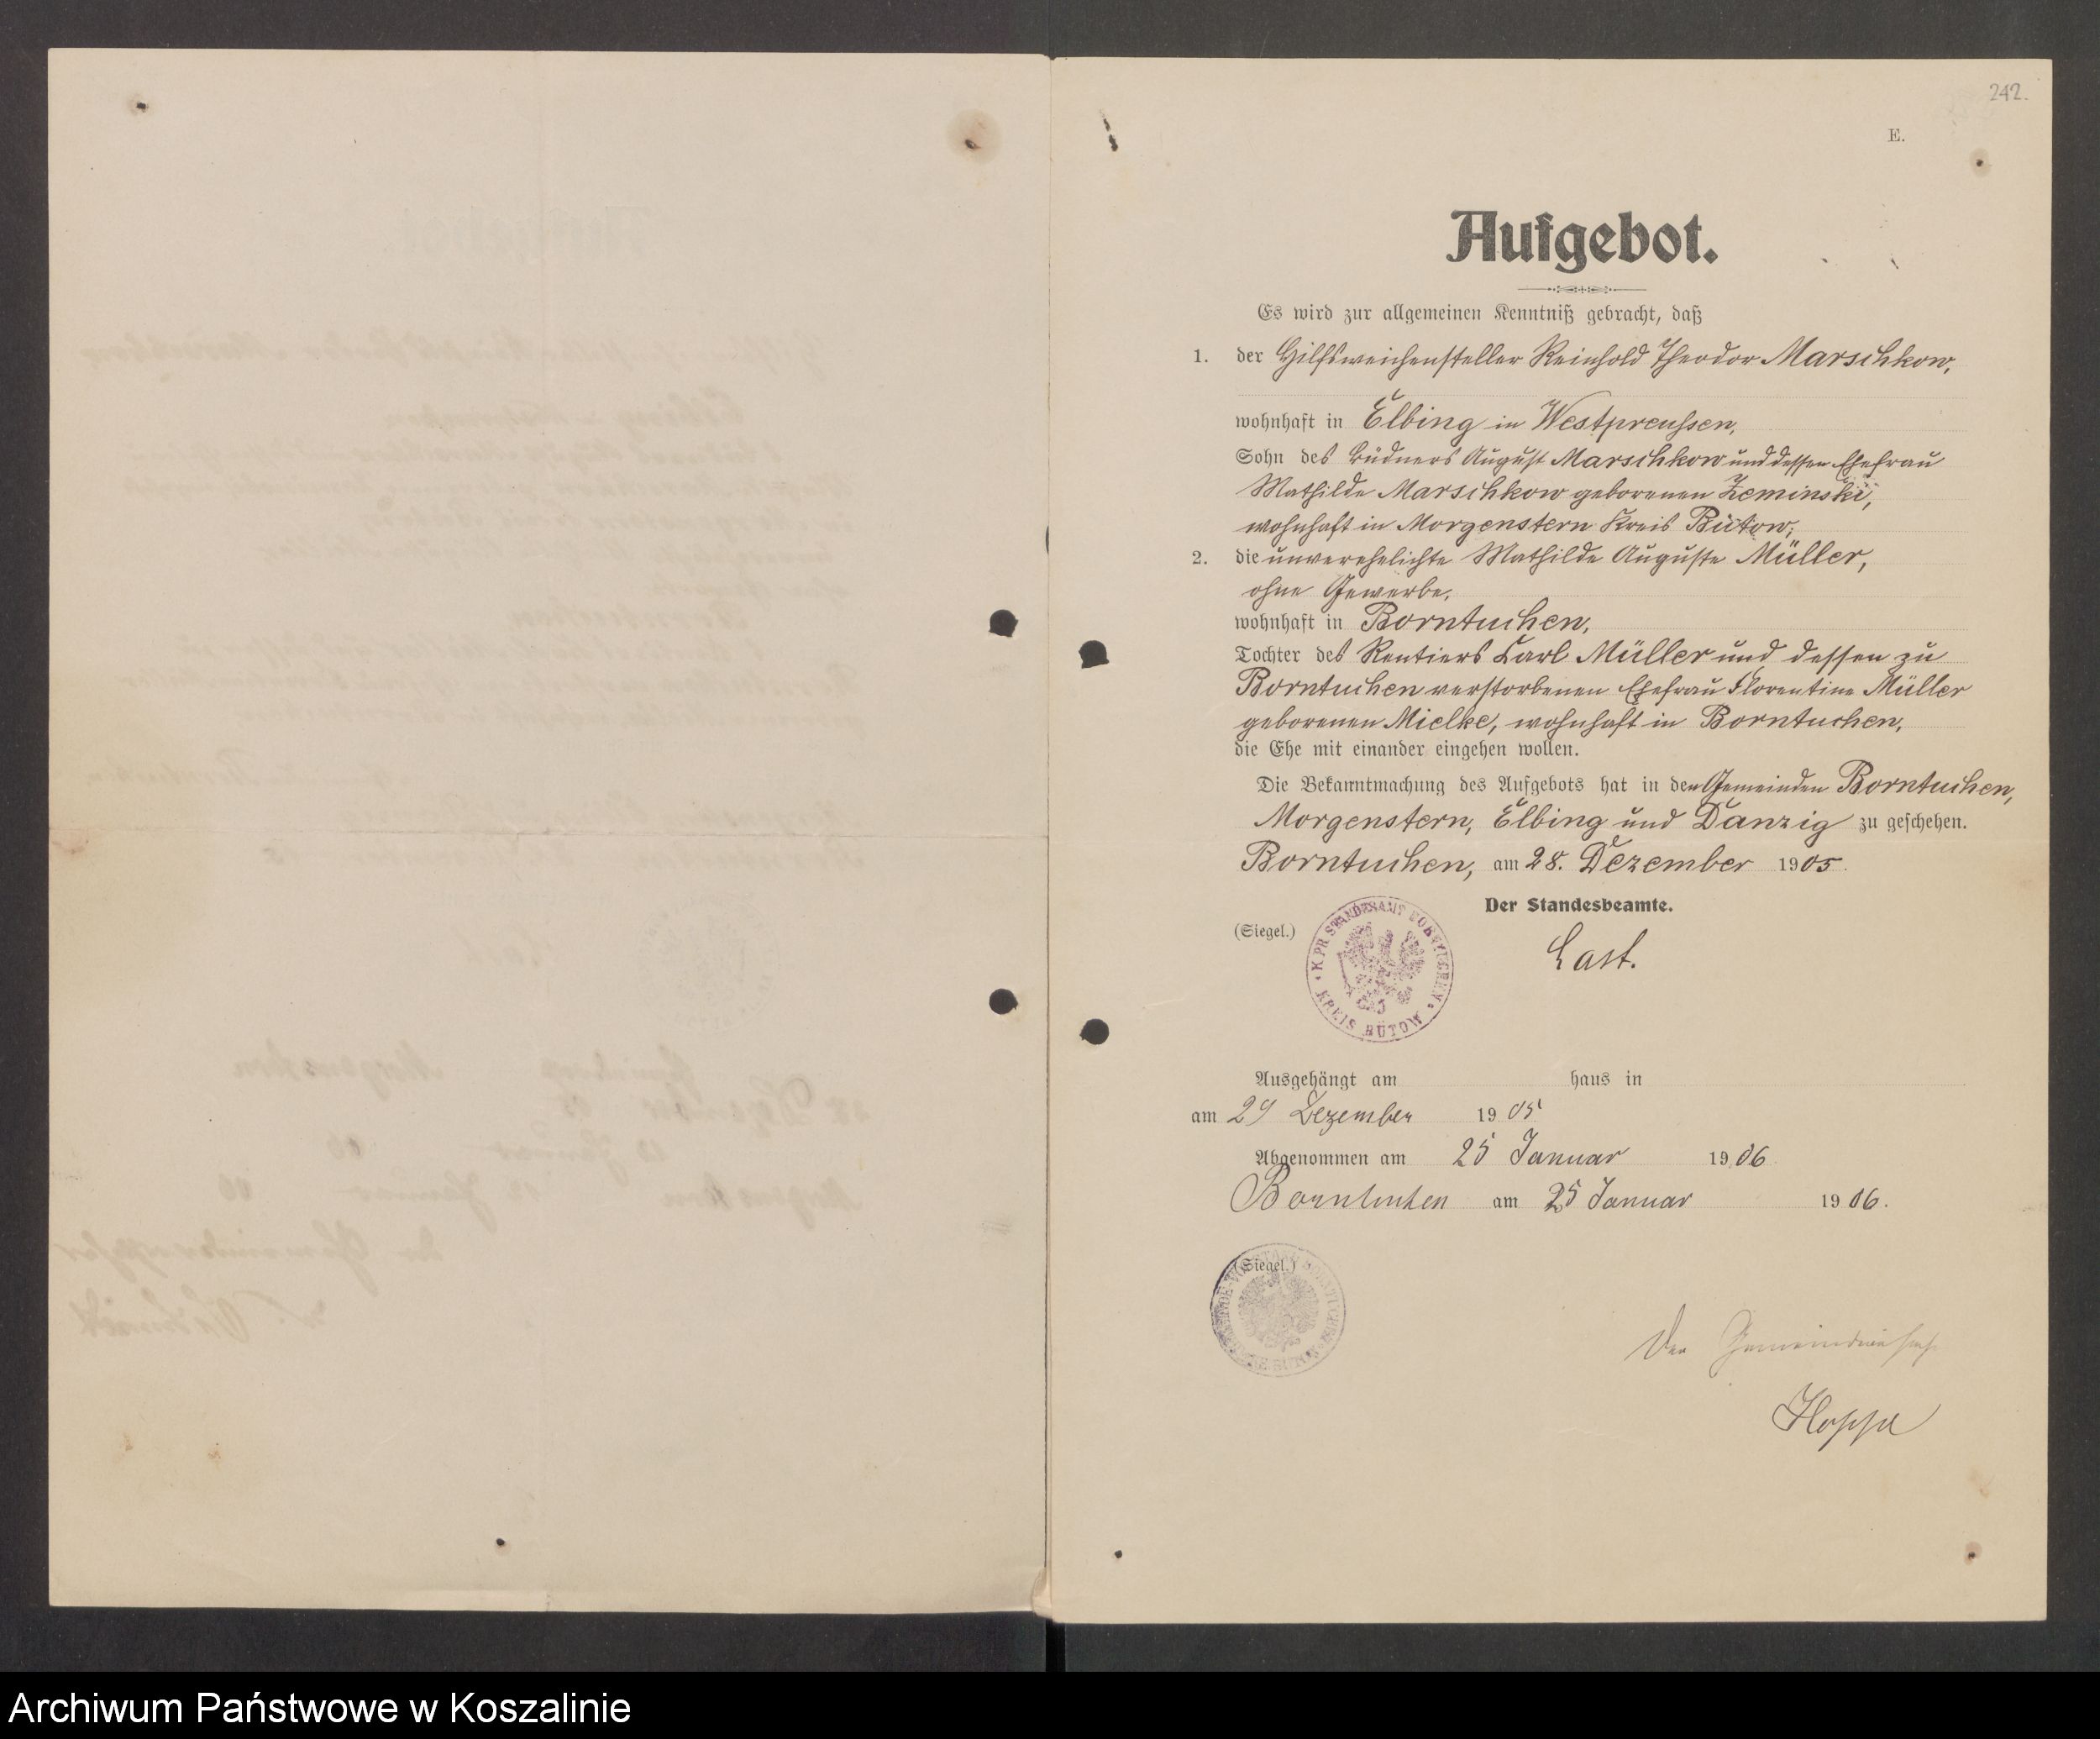 242.
E.
Aufgebot.
Es wird zur allgemeinen Kenntniß gebracht, daß
1. der Hilfsweichensteller Reinhold Theodor Marschkow,
wohnhaft in Elbing in Westpreussen,
Sohn des Büdners August Marschkow und dessen Ehefrau
Mathilde Marschkow geborenen Zeminski,
wohnhaft in Morgenstern Kreis Bütow;
2. die unverehelichte Mathilde Auguste Müller,
ohne Gewerbe,
wohnhaft in Borntuchen,
Tochter des Rentiers Carl Müller und dessen zu
Borntuchen verstorbenen Ehefrau Florentine Müller
geborenen Mielke, wohnhaft in Borntuchen,
die Ehe mit einander eingehen wollen.
Die Bekanntmachung des Aufgebots hat in den Gemeinden Borntuchen,
Morgenstern, Elbing und Danzig zu geschehen.
Borntuchen, am 28. Dezember 1905.
Der Standesbeamte.
(Siegel.)
K. PR. STANDESAMT BORNTUCHEN
KREIS BÜTOW
Last.
Ausgehängt am haus in
am 29 Dezember 1905
Abgenommen am 25 Januar 1906
Borntuchen am 25 Januar 1906.
(Siegel.)
Der
Hoppe
Archiwum Państwowe w Koszalinie